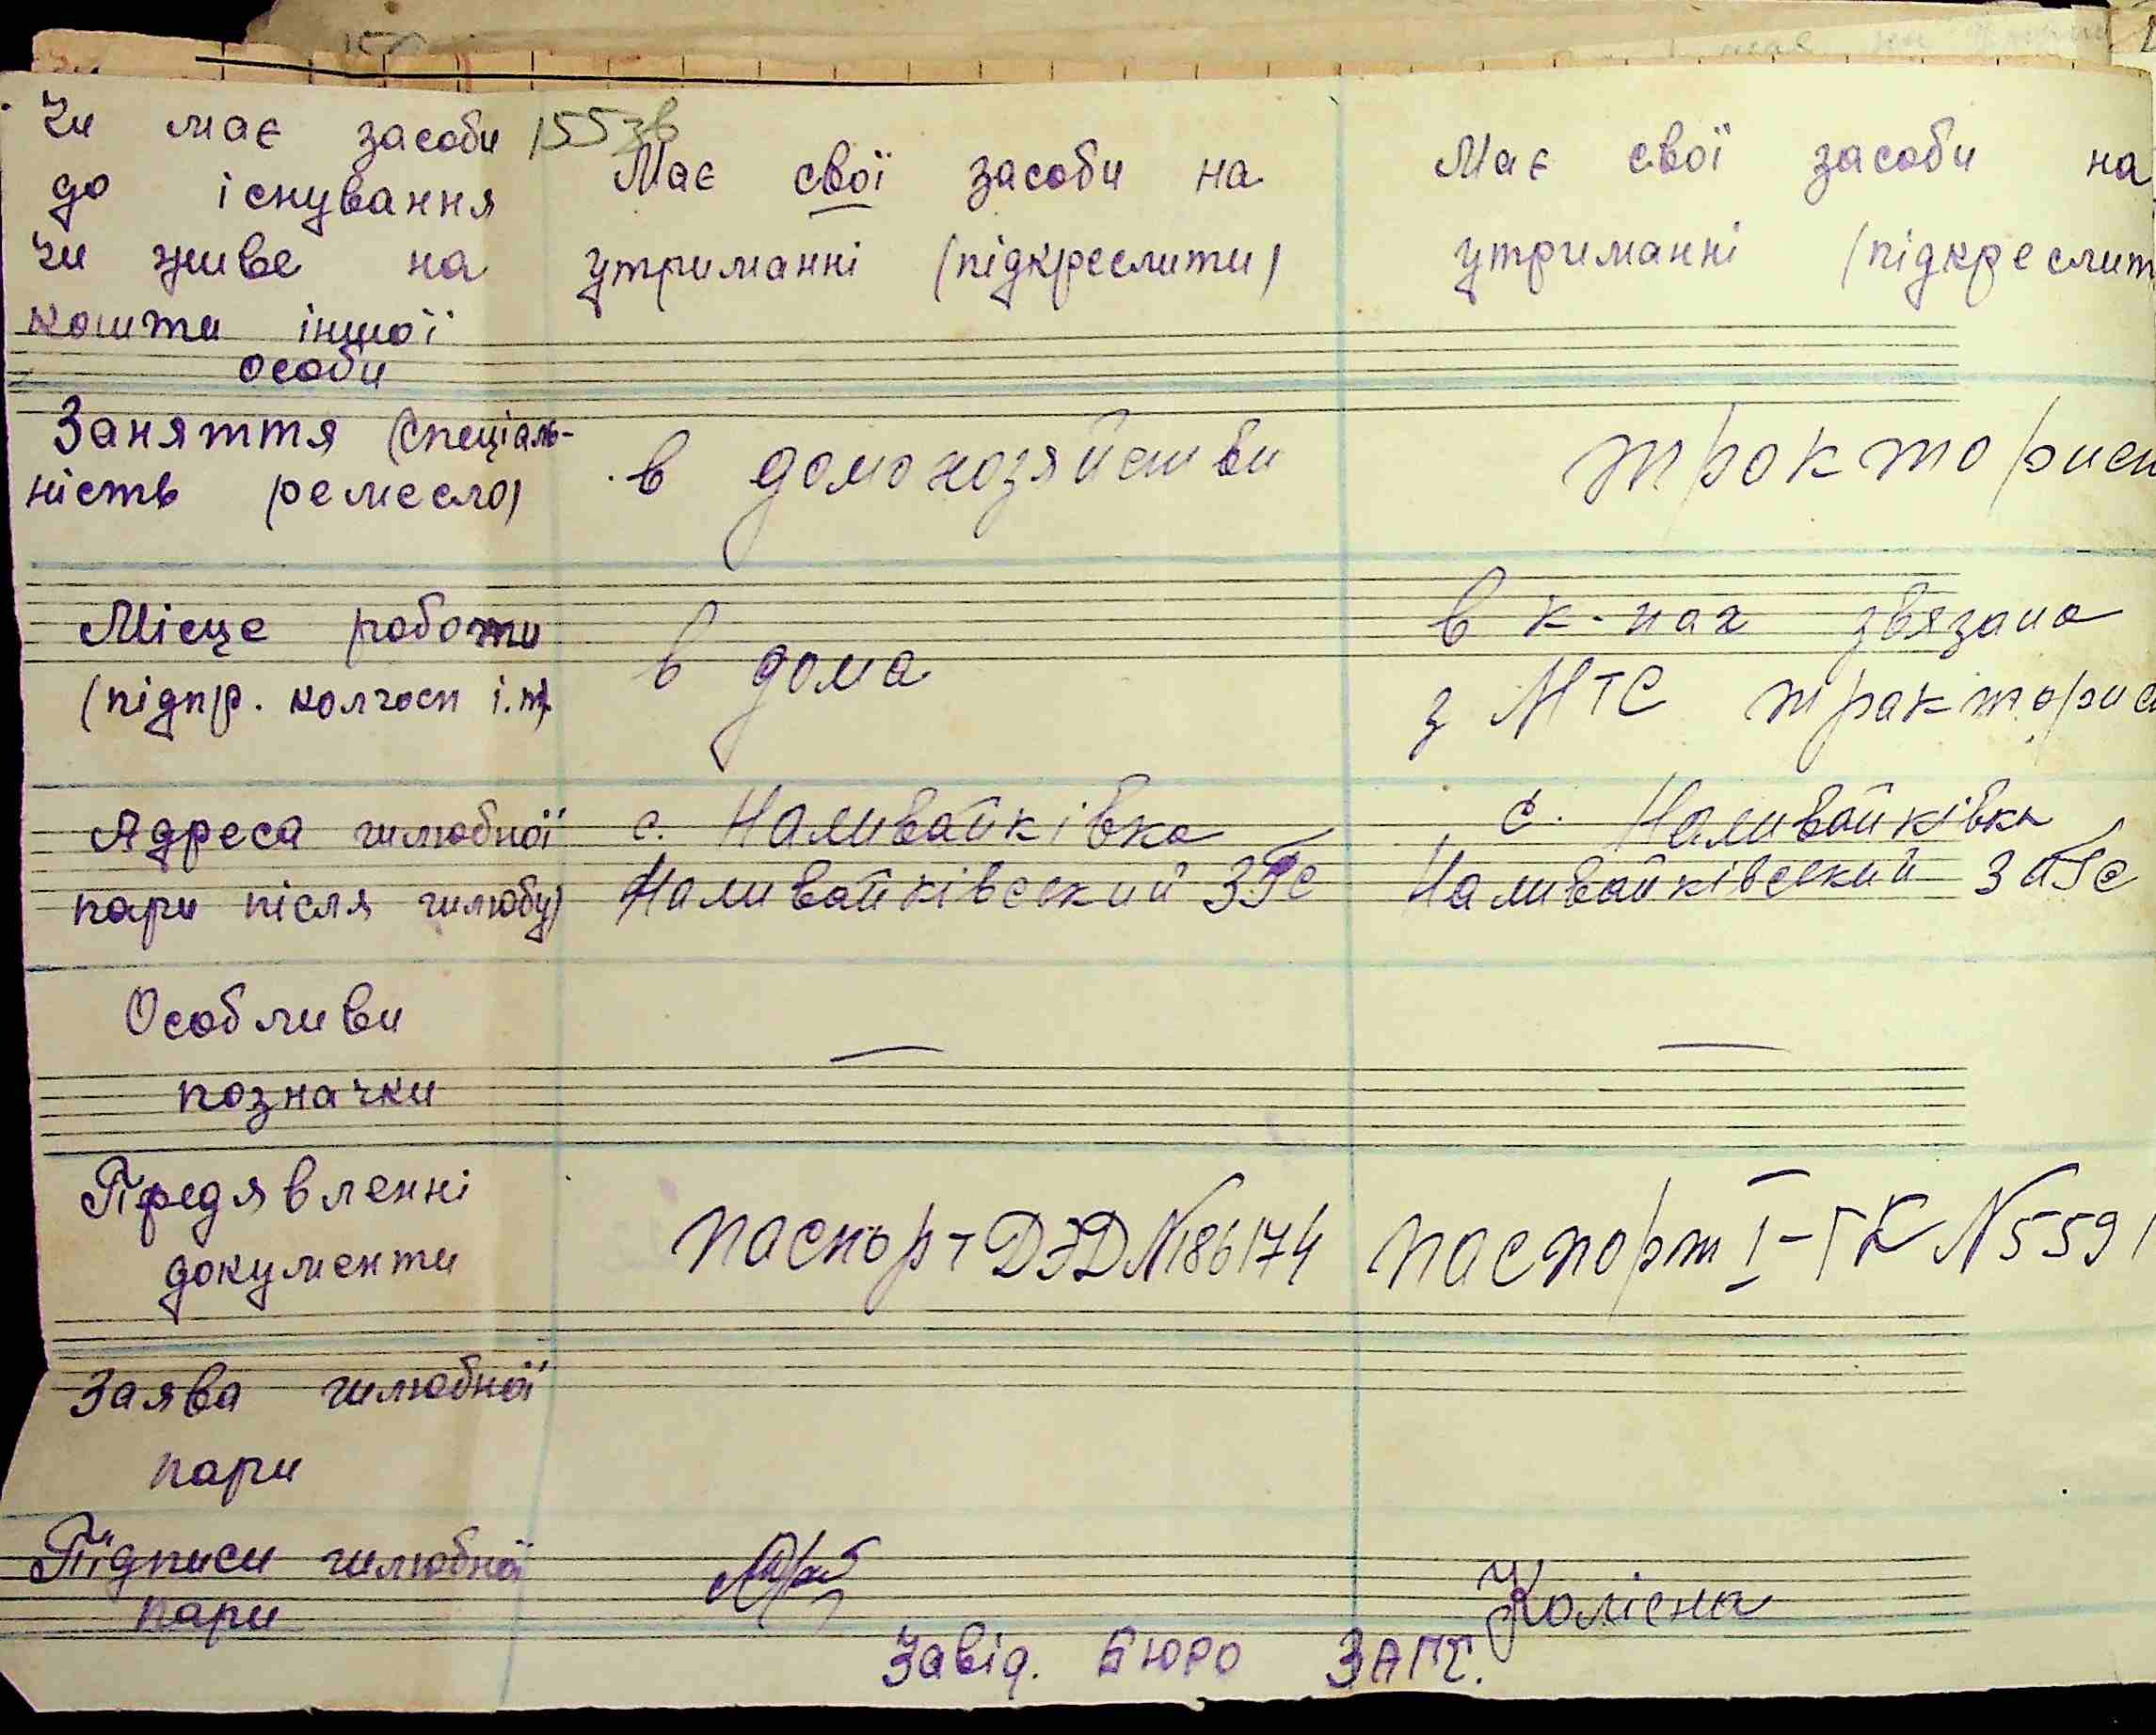 155 зв
Чи має засоби
до існування
чи живе на
кошти іншої
особи
Має свої засоби на
утриманні (підкреслити)
Має свої засоби на
утриманні (підкреслит
Заняття (спеціаль-
ність ремесло)
в домохозяйстви
тракторист
Місце роботи
(підпр. колгосп і.т)
в дома
в к-пах звязана
з МТС тракторис
Адреса шлюбної
пари після шлюбу)
с. Наливайківка
Наливайківский ЗГС
с. Наливайківка
Наливайківский ЗАГС
Особливи
позначки
—
—
Предявленні
документи
паспорт ДЭД №186174
паспорт I-ГК №5591
Заява шлюбної
пари
Підписи шлюбної
пари
Колісна
Завід. БЮРО ЗАГС.